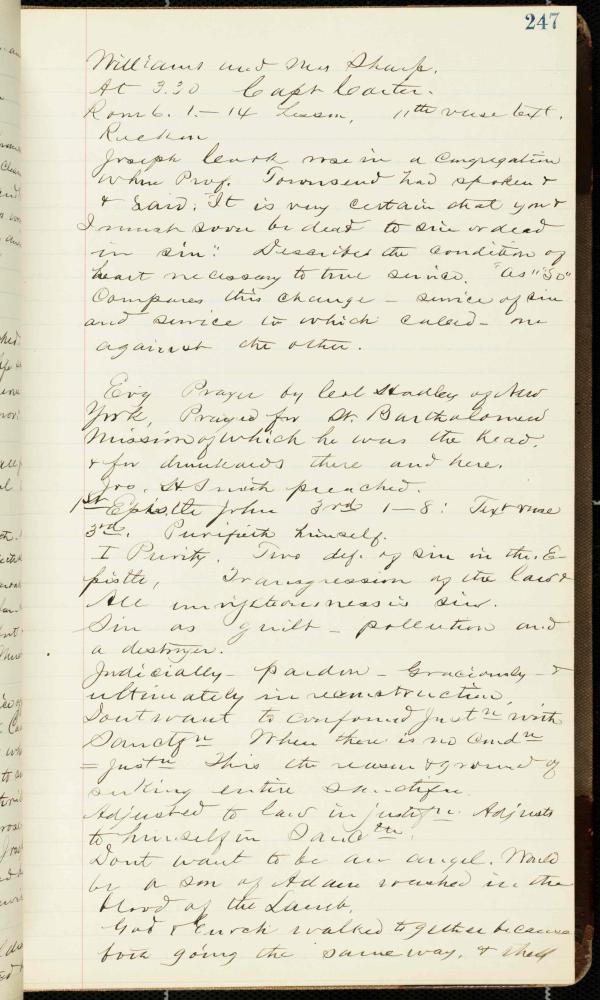 247
Williams and Mrs Sharp.
At 3.30 Capt Carter.
Rom 6. 1.-14 Lesson, 11th verse text.
Reckon
Joseph Cook rose in a Congregation
when Prof. Townsend had spoken &
& said: "It is very certain that you &
I must soon be dead to sin or dead
in sin". Describes the condition of
heart necessary to true service. "As" "So"
Compares this change - service of sin
and service to which called - one
against the other.
Evg Prayer by Col Hadley of New
York, Prayed for St. Bartholomew
Mission of which he was the head,
& for drunkards there and here.
Jos. H Smith preached.
1st Epistle John 3rd 1-8: Text verse
3rd. Purifieth himself.
I Purity. Two def. of sin in the E-
pistle, Transgression of the law &
All unrighteousness is sin.
Sin as guilt - pollution and
a destroyer.
Judicially - pardon - Graciously - &
ultimately in reconstruction,
Dont want to confound Justn with
Sanctfn When there is no Condn
= Justn This the reason & ground of
seeking entire sanctifn.
Adjusted to law in justifn. Adjusts
to himself in Sanctn.
Dont want to be an angel. Would
be a son of Adam washed in the
blood of the Lamb.
God & Enoch walked together because
both going the same way, & shall